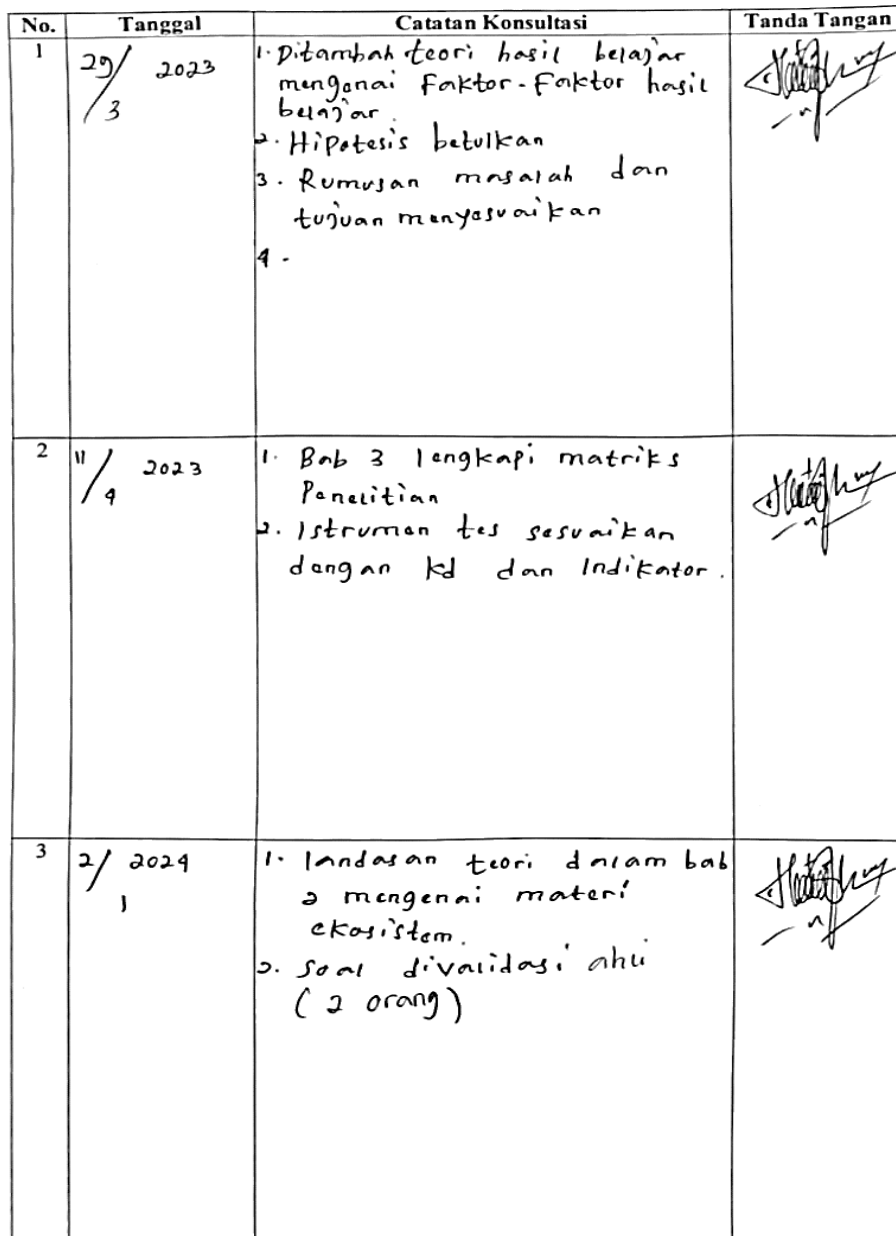 No. Tanggal Catatan Konsultasi Tanda Tangan
1 29/3 2023 1. Ditambah teori hasil belajar
mengenai Faktor-Faktor hasil
belajar.
2. Hipotesis betulkan
3. Rumusan masalah dan
tujuan menyesuaikan
4.
2 11/4 2023 1. Bab 3 lengkapi matriks
Penelitian
2. Istrumen tes sesuaikan
dengan kd dan Indikator.
3 2/1 2024 1. landasan teori dalam bab
2 mengenai materi
ekosistem.
2. Soal divalidasi ahli
(2 orang)